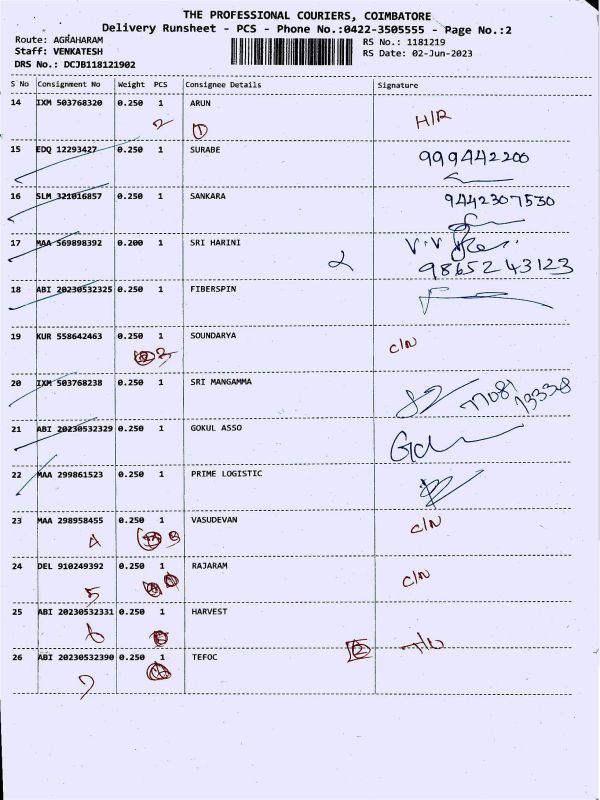 THE PROFESSIONAL COURIERS, COIMBATORE
Delivery Runsheet - PCS - Phone No.:0422-3505555 - Page No.:2
Route: AGRAHARAM
RS No.: 1181219
Staff: VENKATESH
RS Date: 02-Jun-2023
DRS No.: DCJB118121902
S No Consignment No Weight PCS Consignee Details Signature
14 IXM 503768320 0.250 1 ARUN H/R
2 1
15 EDQ 12293427 0.250 1 SURABE 999442200
16 SLM 321016857 0.250 1 SANKARA 9442307530
17 MAA 569898392 0.200 1 SRI HARINI
2 98652 43123
18 ABI 20230532325 0.250 1 FIBERSPIN
19 KUR 558642463 0.250 1 SOUNDARYA C/N
3
20 IXM 503768238 0.250 1 SRI MANGAMMA
21 ABI 20230532329 0.250 1 GOKUL ASSO
22 MAA 299861523 0.250 1 PRIME LOGISTIC
23 MAA 298958455 0.250 1 VASUDEVAN C/N
4
24 DEL 910249392 0.250 1 RAJARAM C/N
5
25 ABI 20230532331 0.250 1 HARVEST
6
26 ABI 20230532390 0.250 1 TEFOC
7